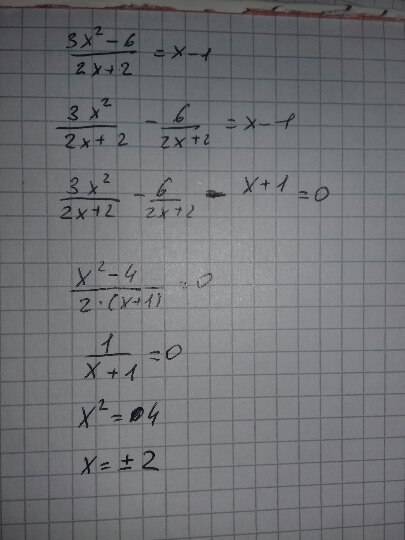 (3x² - 6)/(2x+2) = x-1
3x²/(2x+2) - 6/(2x+2) = x-1
3x²/(2x+2) - 6/(2x+2) - x+1 = 0
(x²-4)/(2·(x+1)) = 0
1/(x+1) = 0
x² = 4
x = ±2